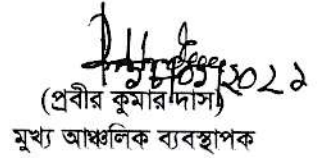 (প্রবীর কুমার দাস)
মুখ্য আঞ্চলিক ব্যবস্থাপক